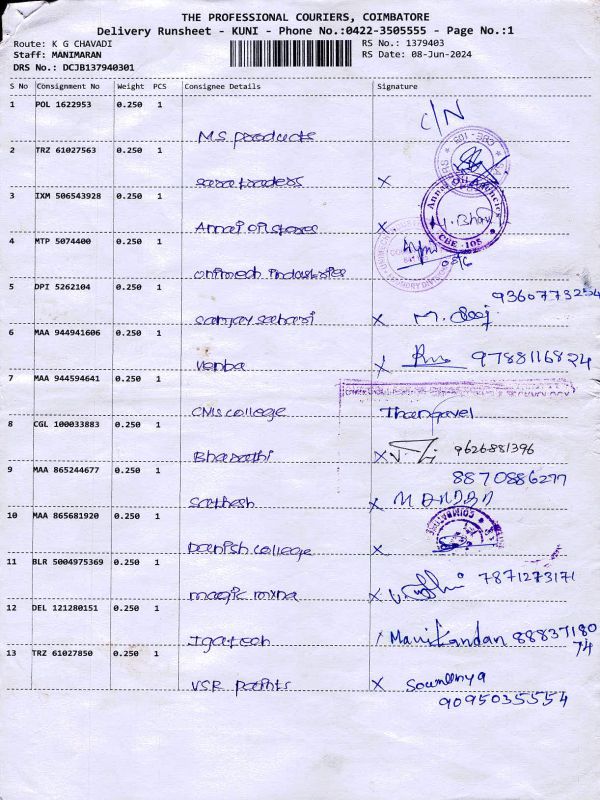 THE PROFESSIONAL COURIERS, COIMBATORE
Delivery Runsheet - KUNI - Phone No.:0422-3505555 - Page No.:1
Route: K G CHAVADI
RS No.: 1379403
Staff: MANIMARAN
RS Date: 08-Jun-2024
DRS No.: DCJB137940301
S No Consignment No Weight PCS Consignee Details Signature
1 POL 1622953 0.250 1
C/N
M.S. products
2 TRZ 61027563 0.250 1
sara traders X
3 IXM 506543928 0.250 1
Annai oil stores X
Annai Oil Agencies
CBE - 105
4 MTP 5074400 0.250 1
08/6
onimech industries
5 DPI 5262104 0.250 1
9360773254
sanjay sabari X M.
6 MAA 944941606 0.250 1
venba X 9788116824
7 MAA 944594641 0.250 1
CMS college Thangavel
8 CGL 100033883 0.250 1
Bharathi X 9626881396
9 MAA 865244677 0.250 1
8870886277
sathesh X
10 MAA 865681920 0.250 1
COIMBATORE
Danish college X
11 BLR 5004975369 0.250 1
7871273171
magic mina X
12 DEL 121280151 0.250 1
Igatech Manikandan 888371180
74
13 TRZ 61027850 0.250 1
VSR paints X Soumunya
9095035554